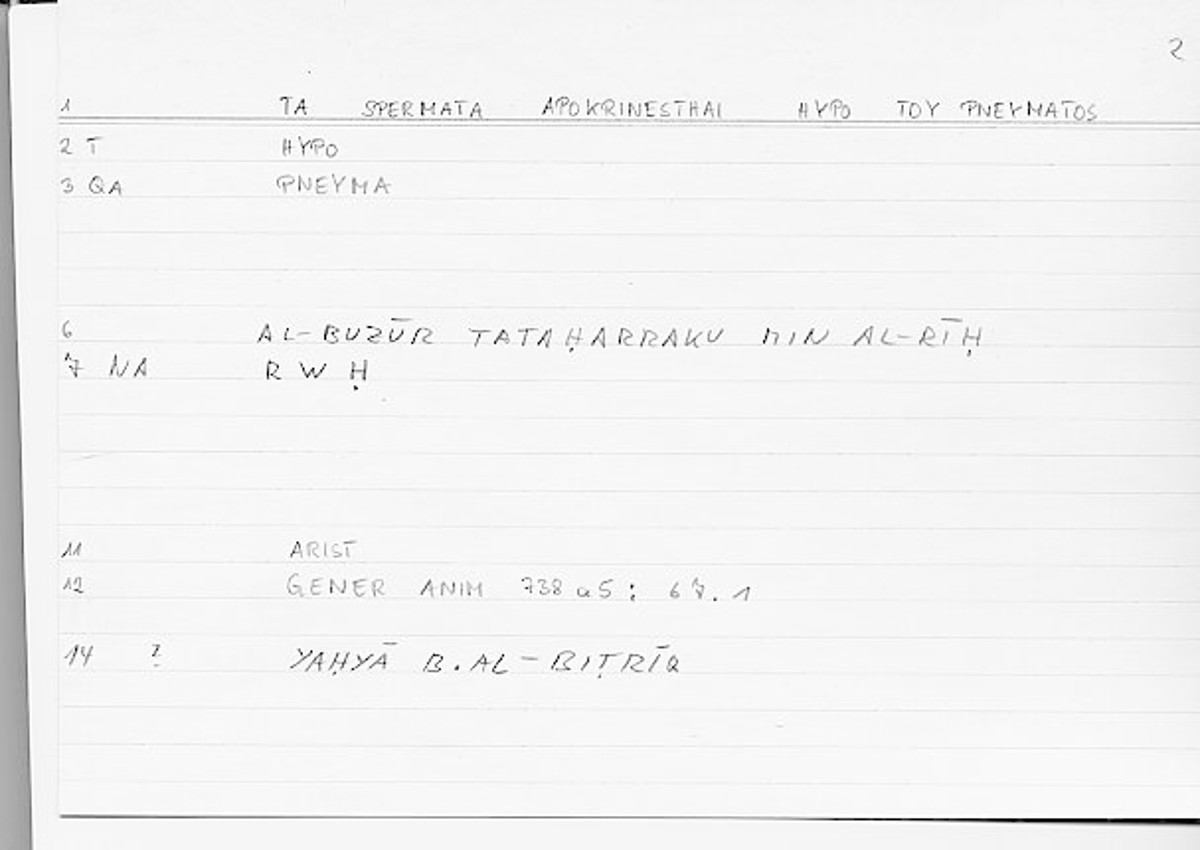 2
1 TA SPERMATA APOKRINESTHAI HYPO TOY PNEYMATOS
2 T HYPO
3 QA PNEYMA
6 AL-BUZŪR TATAḤARRAKU MIN AL-RĪḤ
7 NA R W Ḥ
11 ARIST
12 GENER ANIM 738 a5 : 67.1
14 ? YAḤYĀ B. AL-BIṬRĪQ